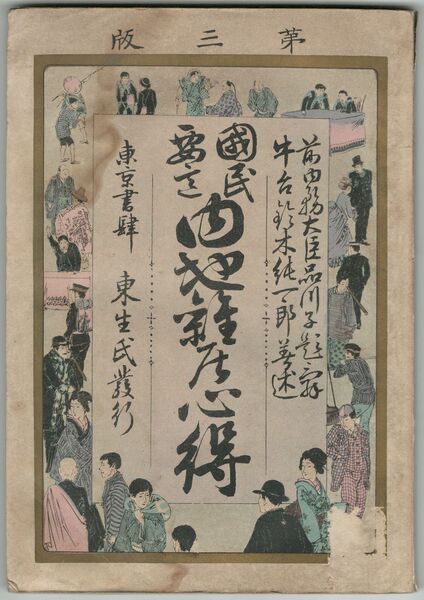 第三版
前内務大臣品川子題辞
牛台鈴木純一郎著述
國民要言
内地雜居心得
東京書肆　東生氏發行